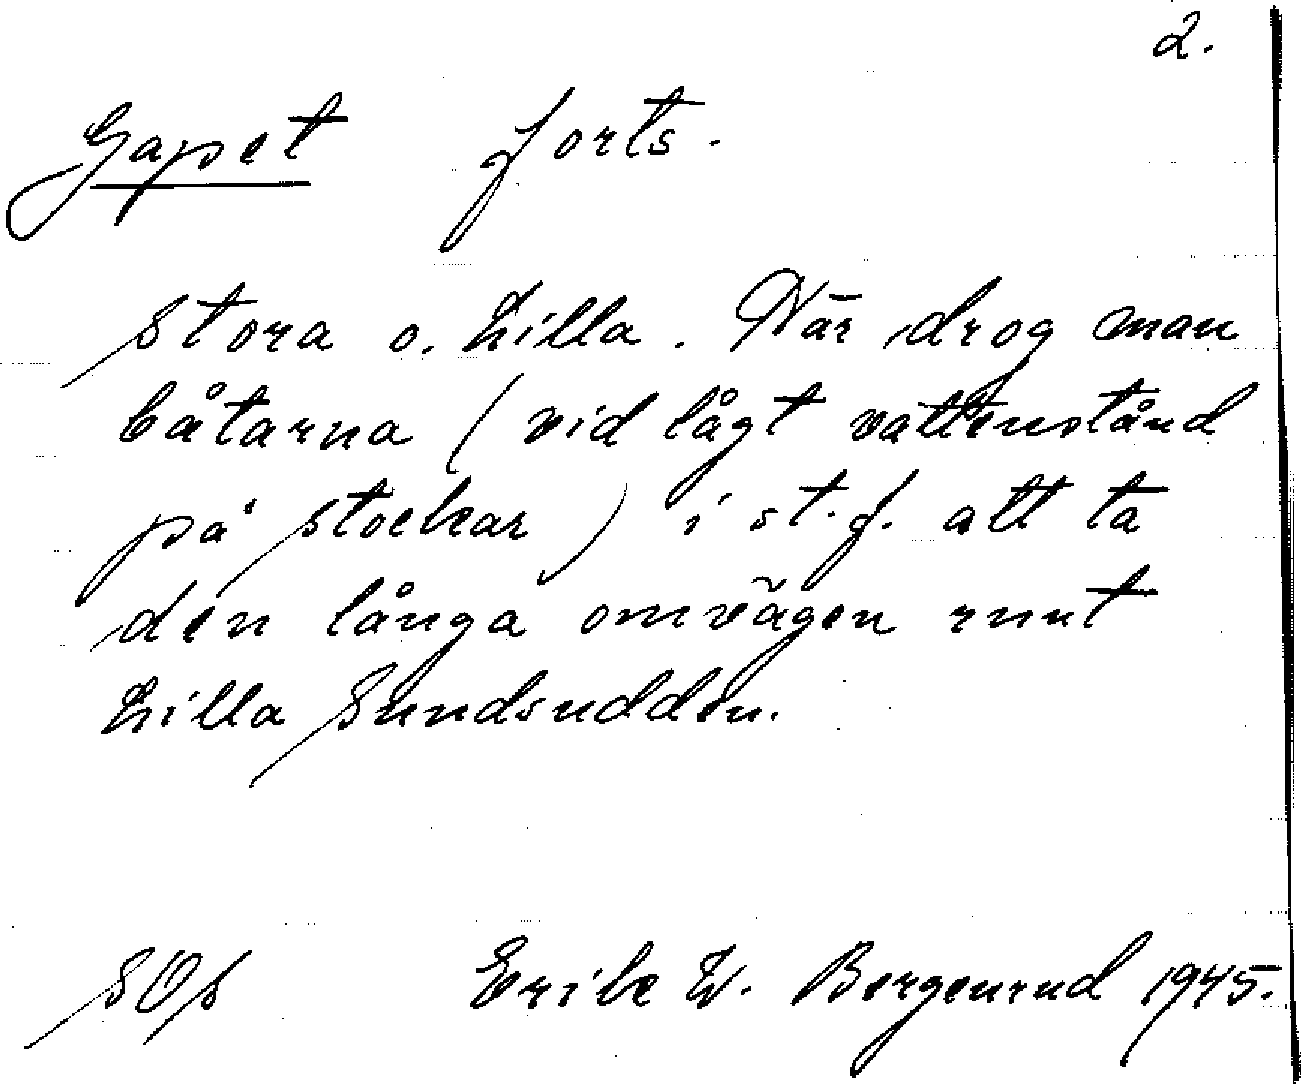 2.
Gapet forts.
Stora o. Lilla. Här drog man
båtarna (vid lågt vattenstånd
på stockar) i st.f. att ta
den långa omvägen runt
Lilla Sundsudden.
SOs Erik W. Bergenrud 1945.